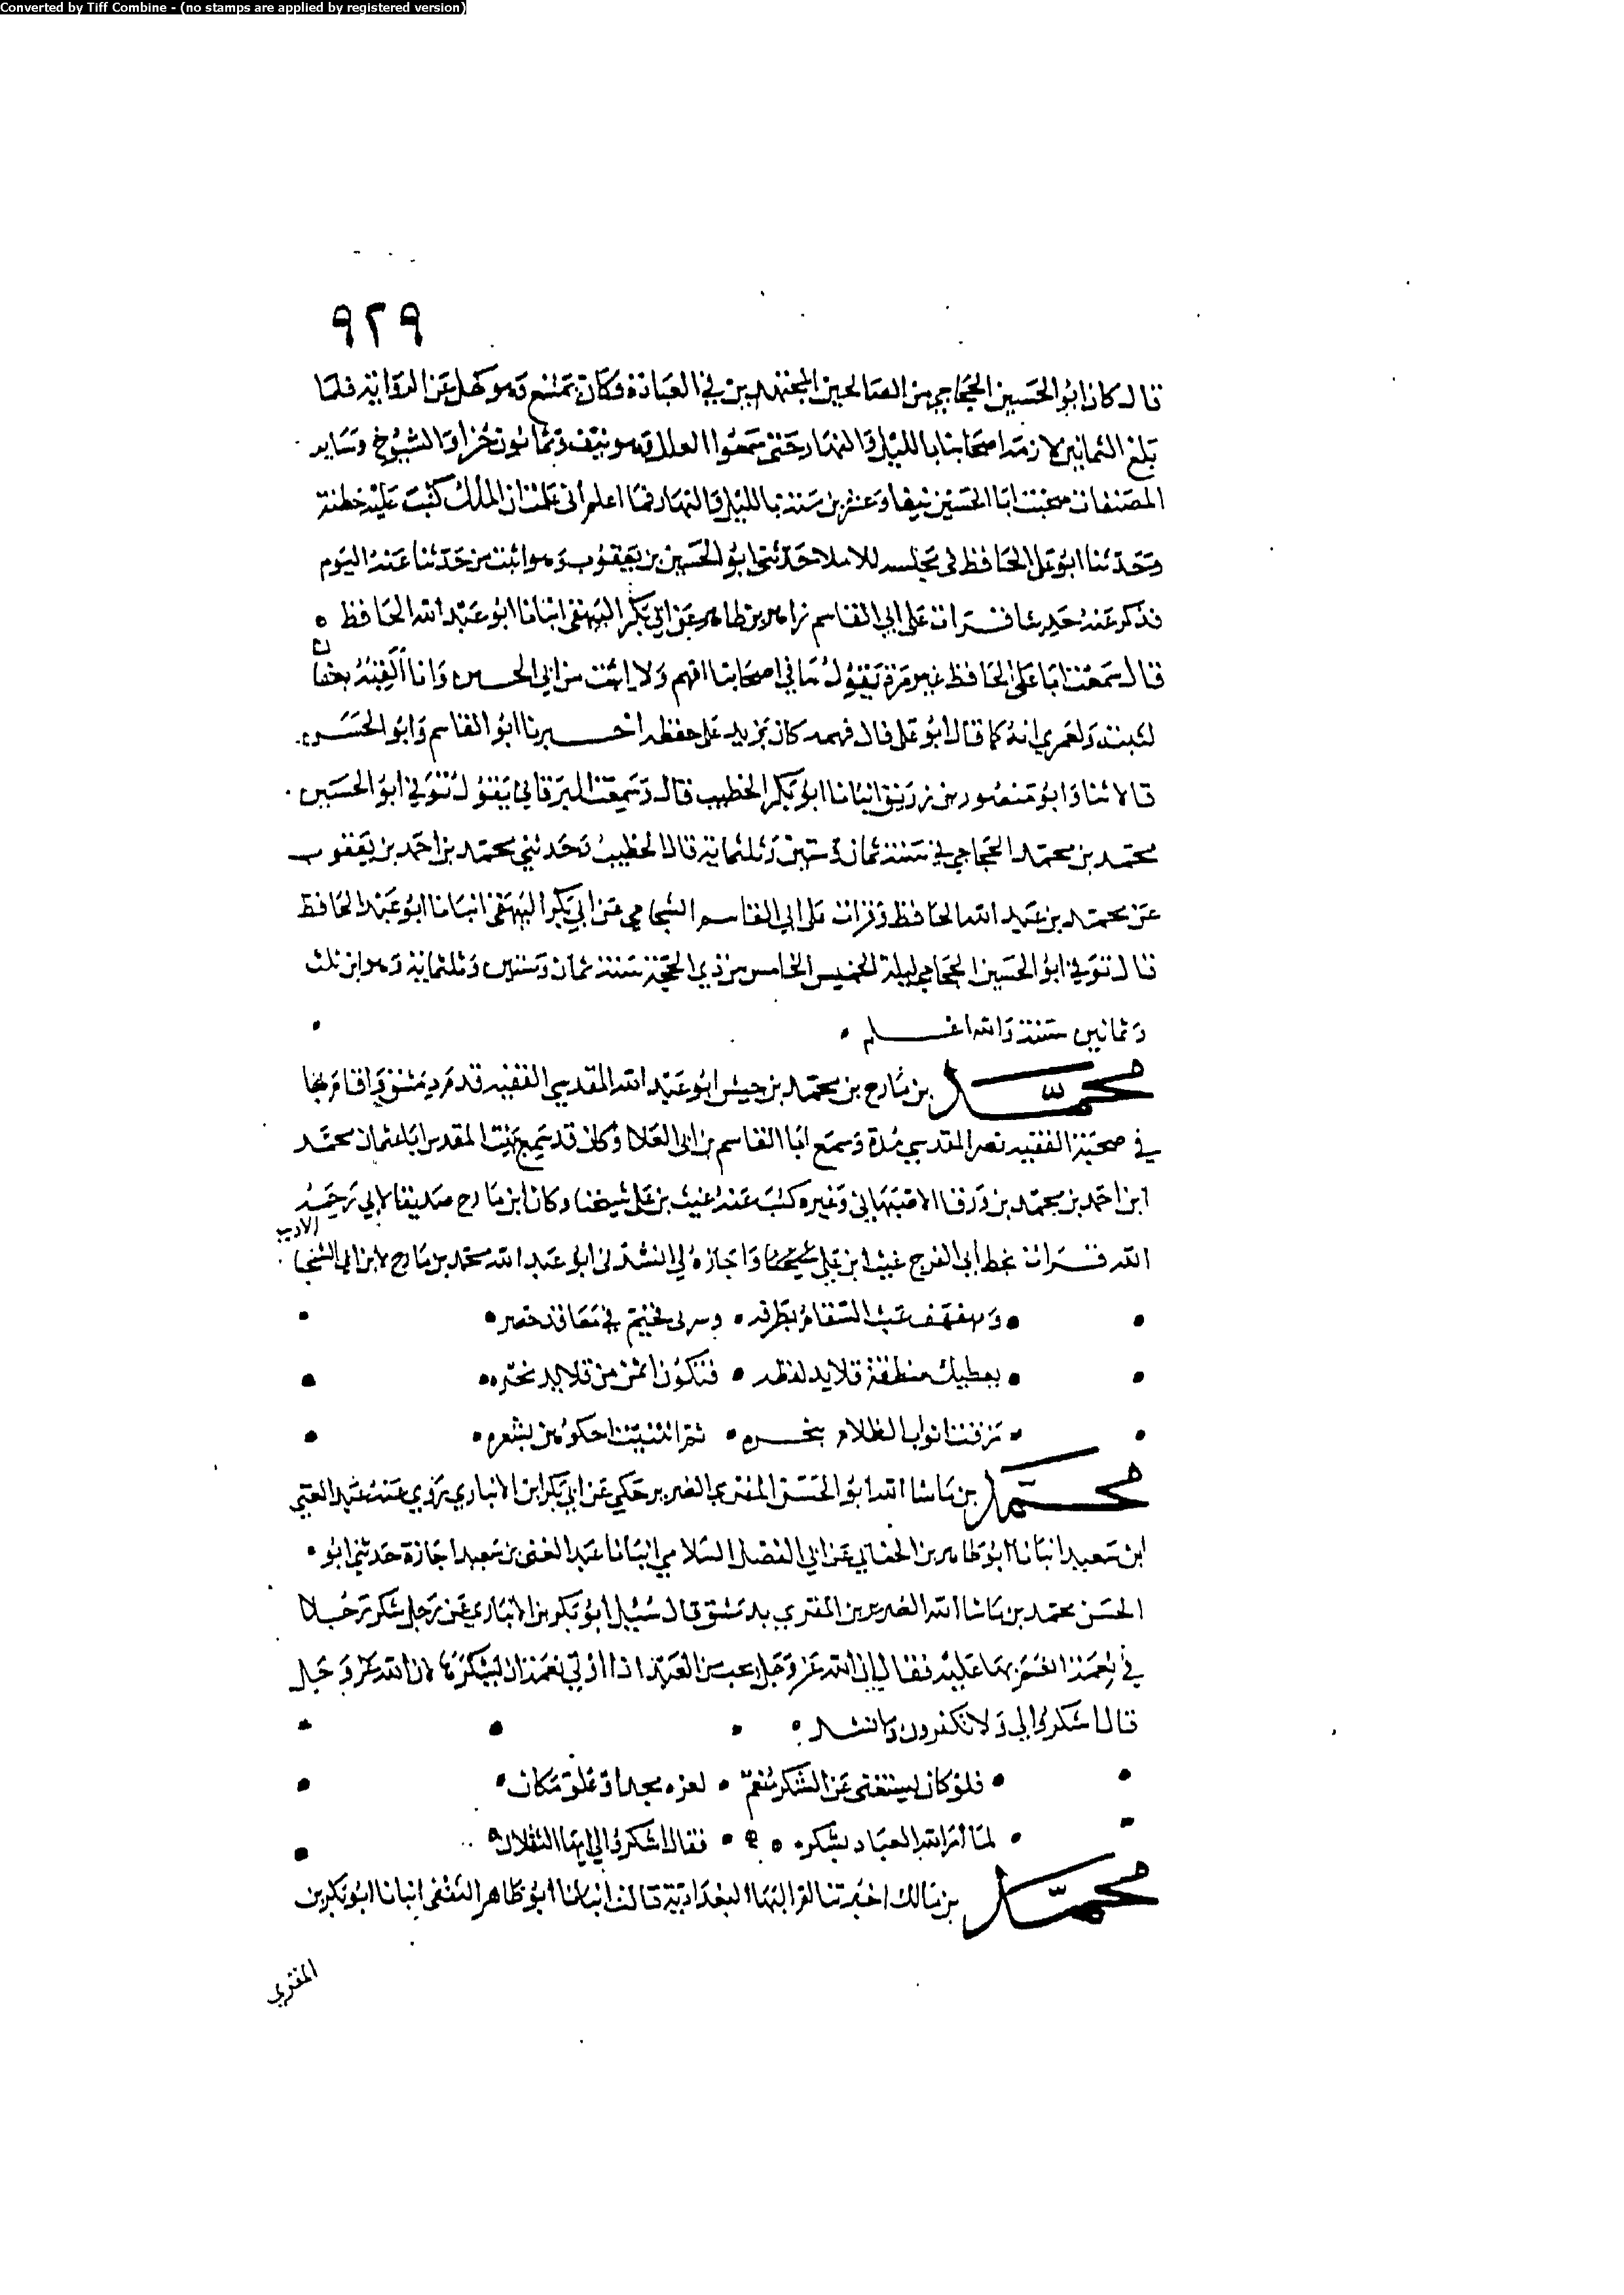 Converted by Tiff Combine - (no stamps are applied by registered version)
٩٢٩
قال كان ابو الحسين الحجاجي من الصالحين المجتهدين في العبادة وكان يمتنع وهو كهل عن الرواية فلما
بلغ الثمانين لازمه اصحابنا بالليل والنهار حتى سمعوا العلل وهو نيف وثمانون جزا والشيوخ وساير
المصنفات صحبت ابا الحسين نيفا وعشرين سنة بالليل والنهار فما اعلم اني علمت ان الملك كتب عليه خطئة
وحدثنا ابو علي الحافظ في مجلسه للاملا حدثني ابو الحسين بن يعقوب وهو اثبت من حدثنا عنه اليوم
فذكر عنه حديثا قرات على ابي القاسم زاهر بن طاهر عن ابي بكر البيهقي انبانا ابو عبد الله الحافظ ه
قال سمعت ابا علي الحافظ غير مرة يقول ما في اصحابنا افهم ولا اثبت من ابي الحسين وانا القبه بعفان
لثبته ولعمري انه كما قال ابو علي قال فهمه كان يزيد على حفظه اخبرنا ابو القاسم وابو الحسن
قالا ثنا وابو منصور بن زريق انبانا ابو بكر الخطيب قال وسمعت البرقاني يقول توفي ابو الحسين
محمد بن محمد الحجاجي في سنة ثمان وستين وثلثماية قال الخطيب وحدثني محمد بن احمد بن يعقوب
عن محمد بن عبد الله الحافظ وقرات على ابي القاسم الشحامي عن ابي بكر البيهقي انبانا ابو عبد الله الحافظ
قال توفي ابو الحسين الحجاجي ليلة الخميس الخامس من ذي الحجة سنة ثمان وستين وثلثماية وهو ابن ثلث
وثمانين سنة والله اعلم
محمد بن مادح بن محمد بن حبيش ابو عبد الله المقدسي الفقيه قدم دمشق واقام بها
في صحبة الفقيه نصر المقدسي مدة وسمع ابا القاسم بن ابي العلا وكان قد سمع ببيت المقدس ابا عثمان محمد
ابن احمد بن محمد بن ورقا الاصبهاني وغيره كتب عنه غيث بن علي شيخنا وكان ابن مادح صديقا لابي رحمه
الله قرات بخط ابي الفرج غيث ابن علي شيخنا واجازه لي انشدني ابو عبد الله محمد بن مادح لابن ابي الشخبا الاديب
ومهفهف عبث السقام بطرفه وسرى فخيم في معاقد خصره
يعطيك منطقه قلايد لفظه فتكون اثمن من قلايد نحره
مزقت اثواب الظلام بثغره ثم انثنيت احوكهن بشعره
محمد بن ماشا الله ابو الحسن المقري الضرير حكي عن ابي بكر ابن الانباري يروي عنه عبد الغني
ابن سعيد انبانا ابو طاهر بن الحنايي عن ابي الفضل السلامي انبانا عبد الغني بن سعيد اجازة حدثني ابو
الحسن محمد بن ماشا الله الضرير المقري بدمشق قال سئيل ابو بكر بن الانباري عن رجل شكر رجلا
في نعمة انعم بها عليه فقال ان الله عز وجل يحب من العبد اذا اولي نعمة ان يشكرها لان الله عز وجل
قال اشكروا لي ولا تكفرون وانشد
فلو كان يستغني عن الشكر منعم لعزه مجد او علو مكان
لما امر الله العباد بشكره فقال اشكروا لي ايها الثقلان
محمد بن مالك اخبرتنا ام البها البغدادية قالت انبانا ابو طاهر الثقفي انبانا ابو بكر بن
المقري